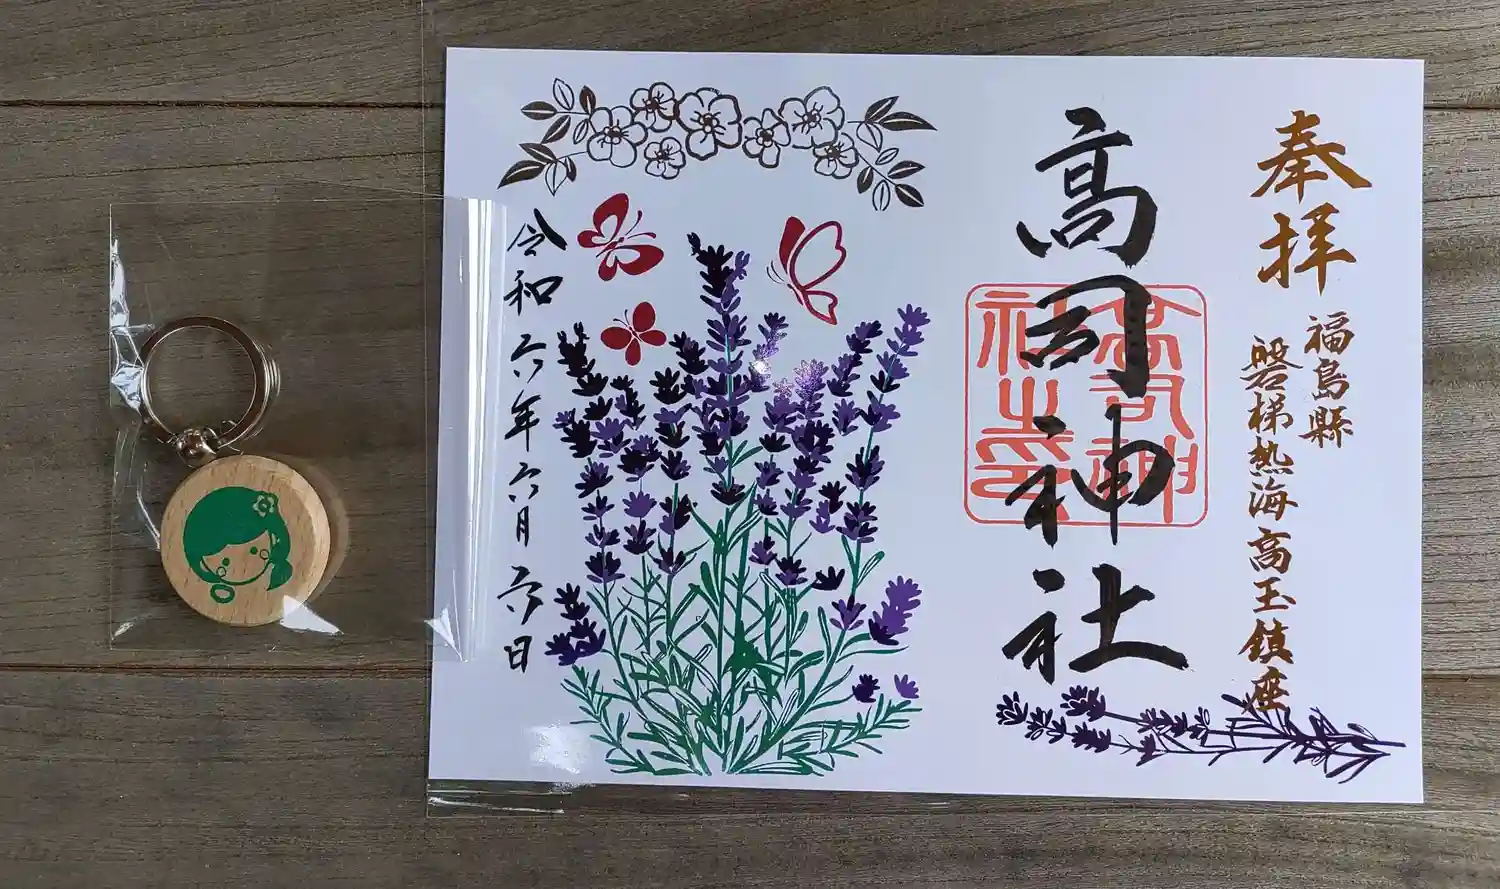 奉拝
福島縣
磐梯熱海高玉鎮座
高司神社
高司神社之印
令和六年六月六日